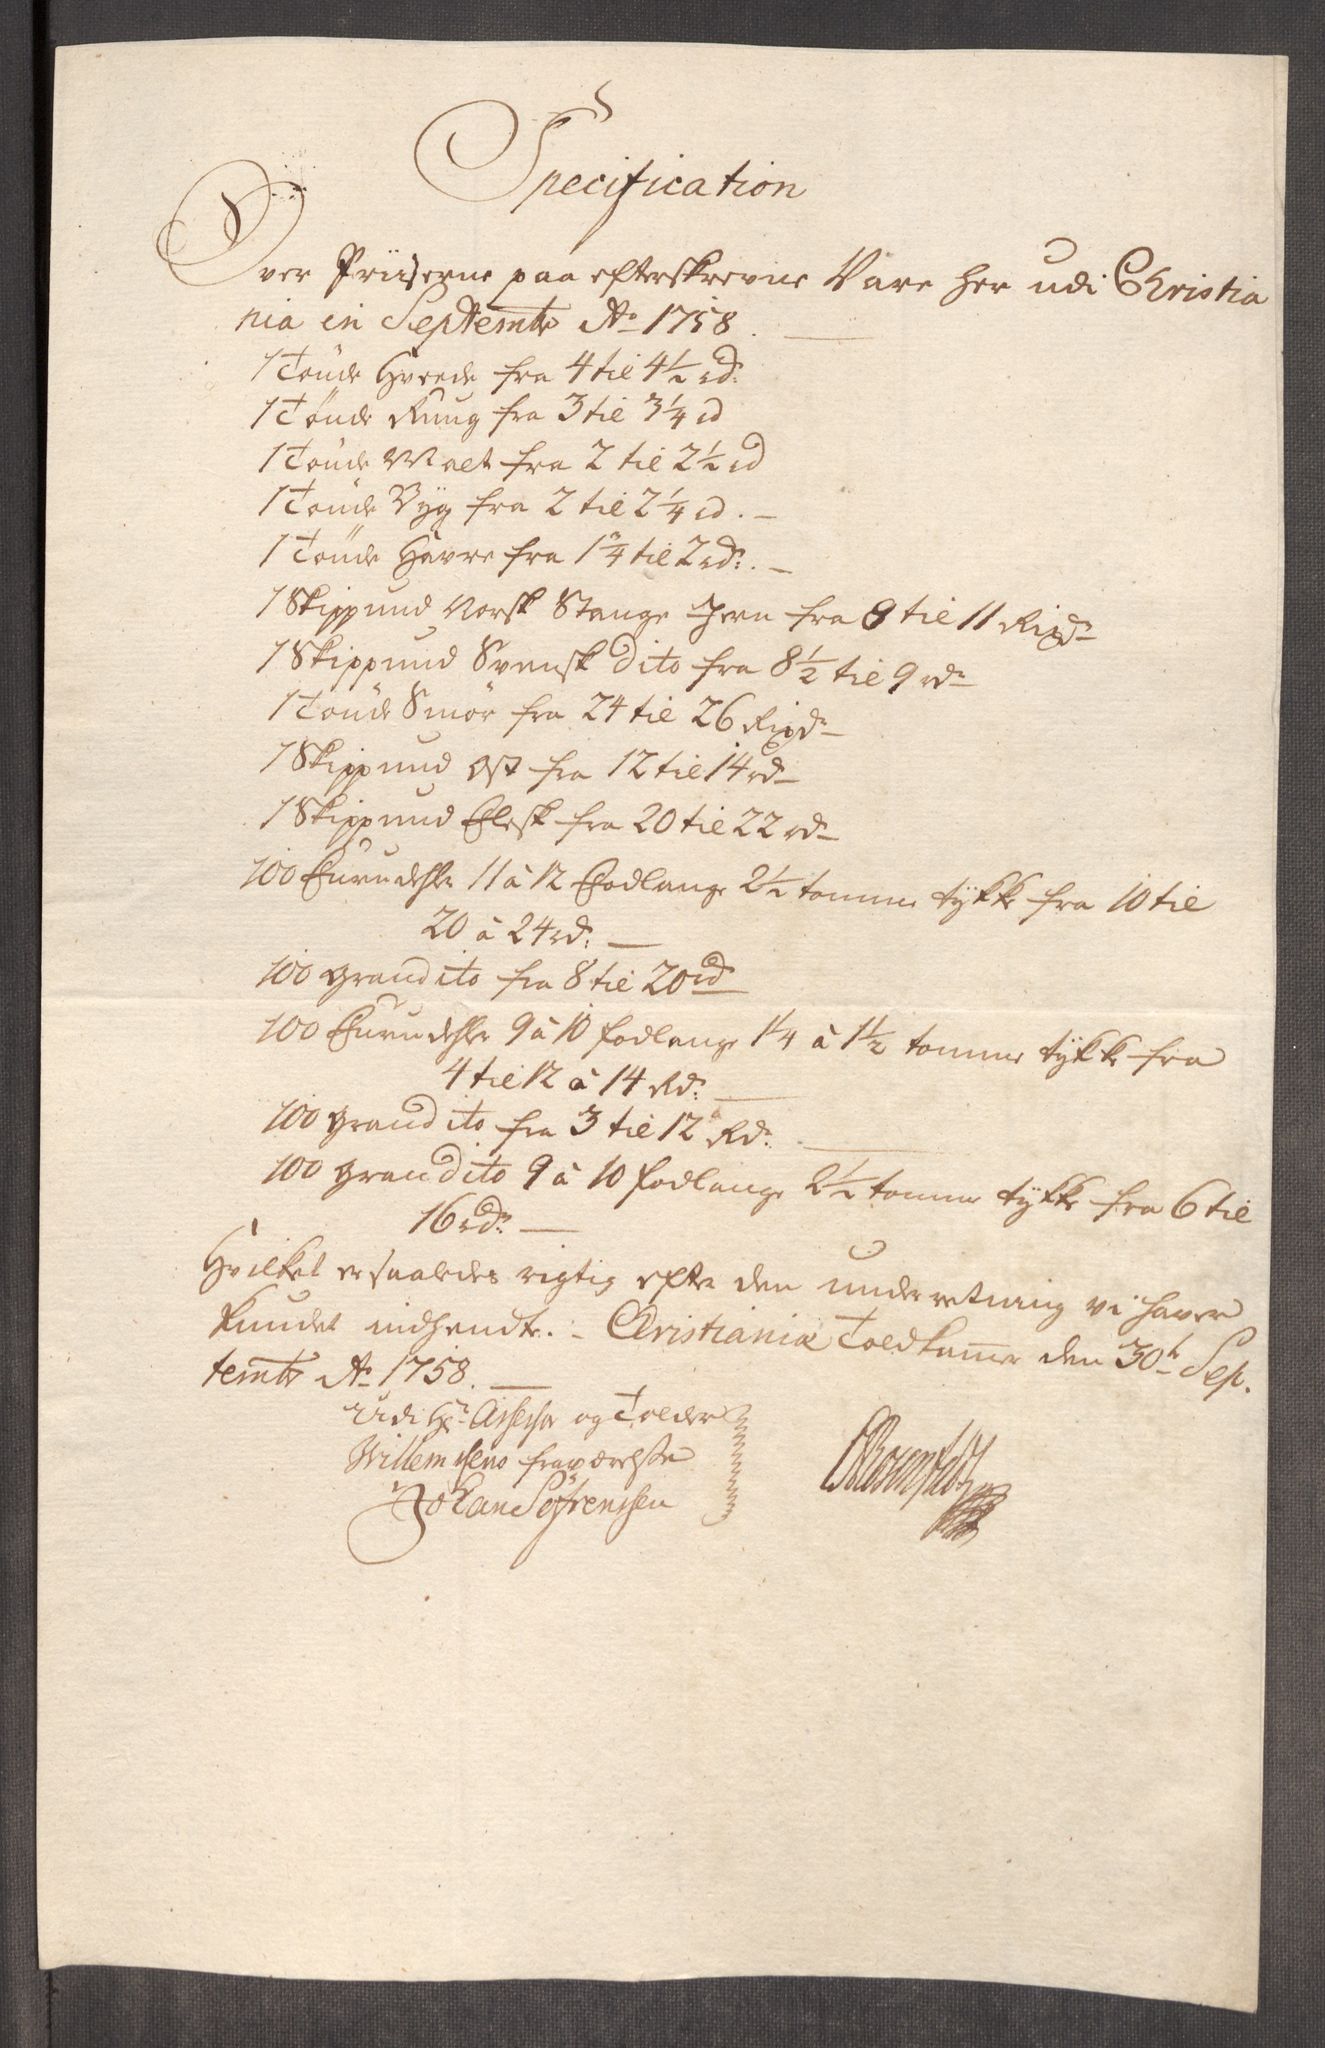 Specification
Over Priiserne paa efterskrevne Vare her udi Christia
nia in Septembr Ao 1758.
1 Tönde Hvede fra 4 til 4 1/2 rd:
1 Tönde Ruug fra 3 til 3 1/4 rd
1 Tönde Malt fra 2 til 2 1/2 rd
1 Tönde Byg fra 2 til 2 1/4 rd.
1 Tönde Havre fra 1 3/4 til 2 rd:.
1 Skippund Norsk Stange Jern fra 9 til 11 Rixdr
1 Skippund Svensk dito fra 8 1/2 til 9 rdr
1 Tönde Smör fra 24 til 26 Rixdr
1 Skippund Ost fra 12 til 14 rdr
1 Skippund Flesk fra 20 til 22 rdr
100 Furudehler 11 à 12 Fodlange 2 1/2 tomme tykke fra 10 til
20 à 24 rd:
100 Gran dito fra 8 til 20 rd
100 Furudehler 9 à 10 fodlange 1 1/4 à 1 1/2 tomme tykke fra
4 til 12 à 14 Rd:
100 Gran dito fra 3 til 12 Rd:
100 Gran dito 9 à 10 fodlange 2 1/2 tomme tykke fra 6 til
16 rdr:
Hvilket er saaledes rigtig efter den underretning vi haver
kundet indhendte. Christianiæ Toldkammer den 30te Sep.
tembr Ao 1758.
Udi Hr. Assessor og Tolder
Willemsens fraværelse
Johan Söfrenssen